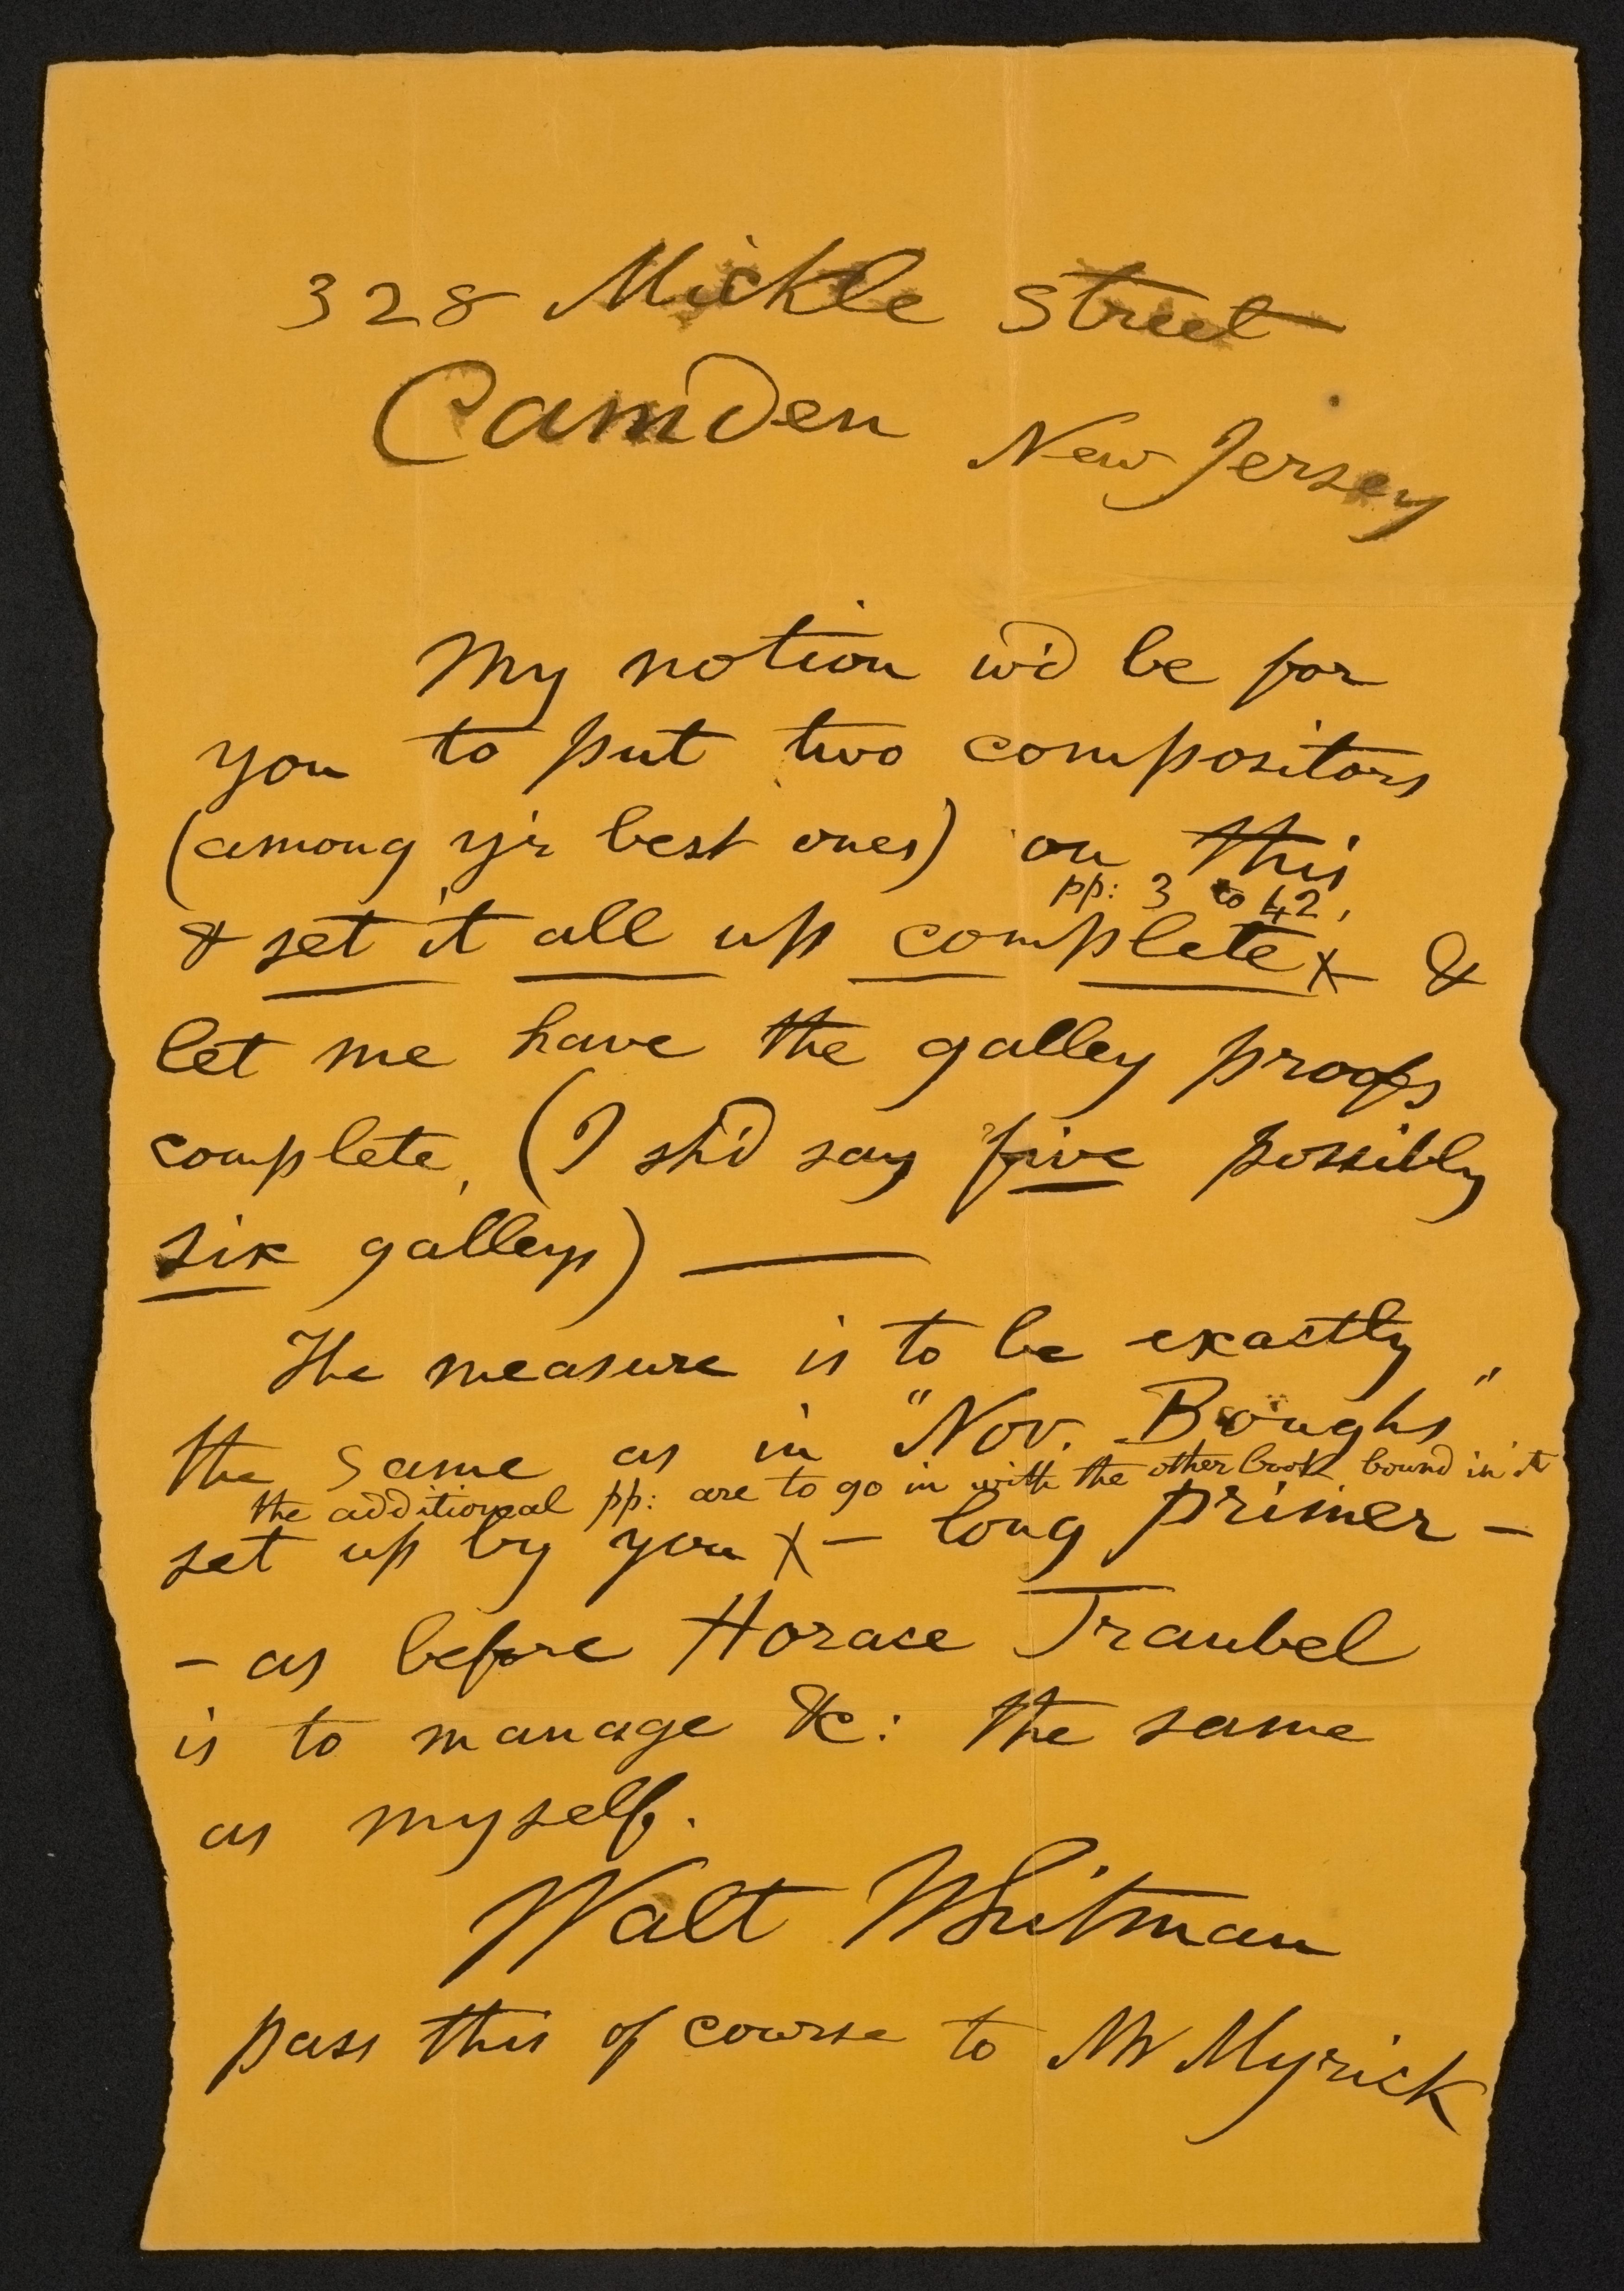 328 Mickle Street
Camden New Jersey
My notion w'd be for
you to put two compositors
(among y'r best ones) on this
pp: 3 to 42,
& set it all up complete x &
let me have the galley proofs
complete, (I sh'd say five possibly
six galleys) —
The measure is to be exactly
the same as in "Nov. Boughs"
the additional pp: are to go in with the other book bound in it
set up by you x — long primer —
— as before Horace Traubel
is to manage &c: the same
as myself.
Walt Whitman
pass this of course to Mr Myrick